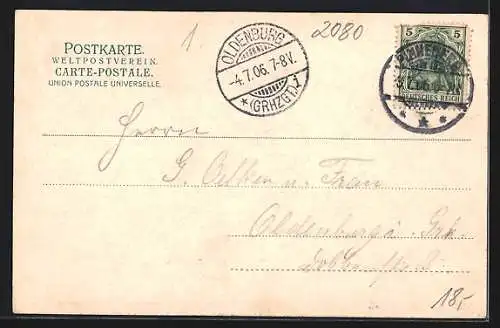 1.
2080
POSTKARTE.
WELTPOSTVEREIN.
CARTE-POSTALE.
UNION POSTALE UNIVERSELLE.
OLDENBURG
-4.7.06.7-8V.
* (GRHZGT.) 1
5 5
DEUTSCHES REICH
Herrn
G. Oetken u. Frau
Oldenburg i. Grh.
18,-